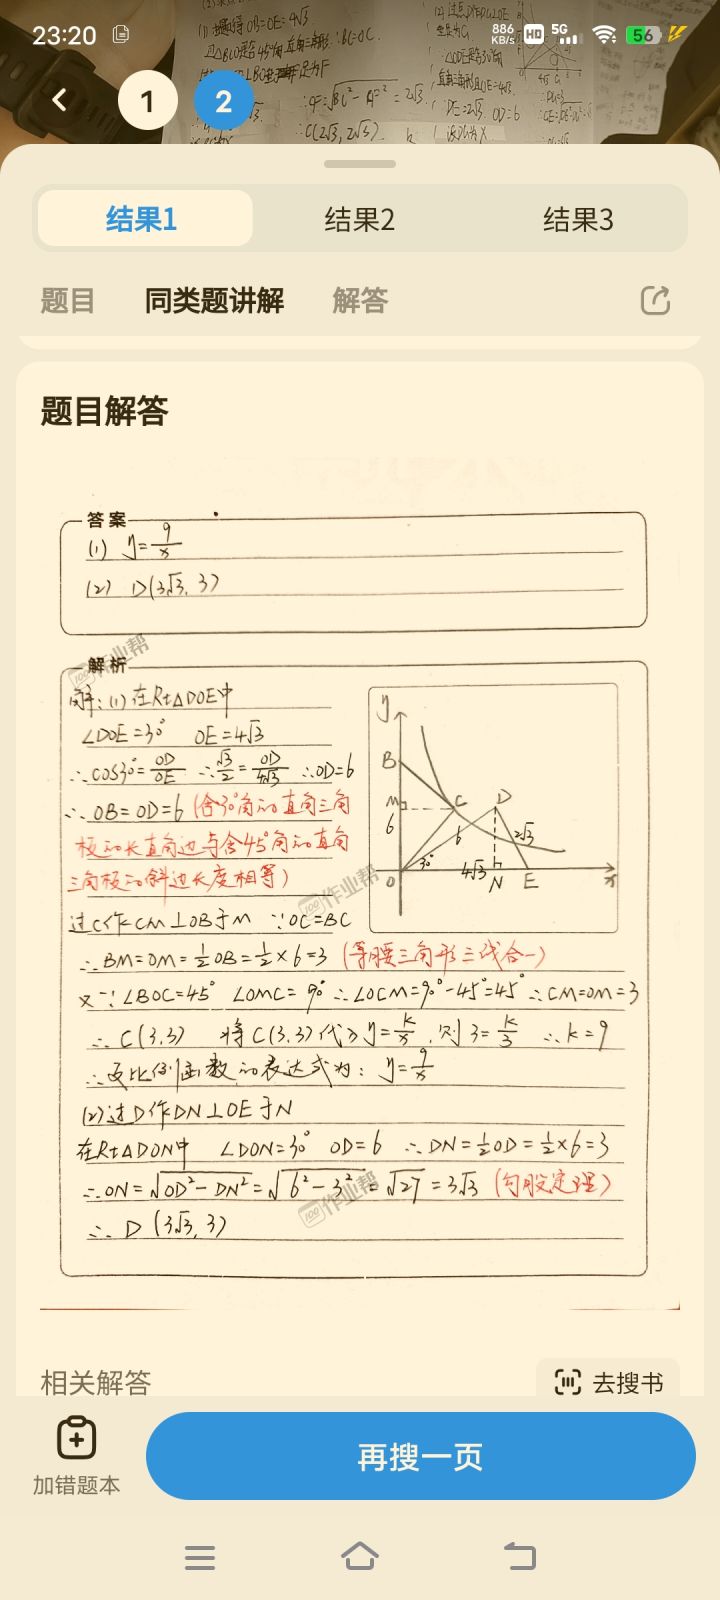 23:20
886 KB/s HD 5G 56
1 2
结果1 结果2 结果3
题目 同类题讲解 解答
题目解答
答案
(1) y=9/x
(2) D(3√3, 3)
解析
解:(1)在Rt△DOE中
∠DOE=30° OE=4√3
∴cos30°=OD/OE ∴√3/2=OD/4√3 ∴OD=6
∴OB=OD=6 (含30°角的直角三角
板的长直角边与含45°角的直角
三角板的斜边长度相等)
过C作CM⊥OB于M ∵OC=BC
∴BM=OM=1/2OB=1/2×6=3 (等腰三角形三线合一)
又∵∠BOC=45° ∠OMC=90° ∴∠OCM=90°-45°=45° ∴CM=OM=3
∴C(3,3) 将C(3,3)代入y=k/x, 则3=k/3 ∴k=9
∴反比例函数的表达式为: y=9/x
(2)过D作DN⊥OE于N
在Rt△DON中 ∠DON=30° OD=6 ∴DN=1/2OD=1/2×6=3
∴ON=√OD²-DN²=√6²-3²=√27=3√3 (勾股定理)
∴D(3√3, 3)
y
B
M C D
6 6 2√3
30°
O 4√3 N E x
作业帮
作业帮
作业帮
相关解答 去搜书
加错题本 再搜一页